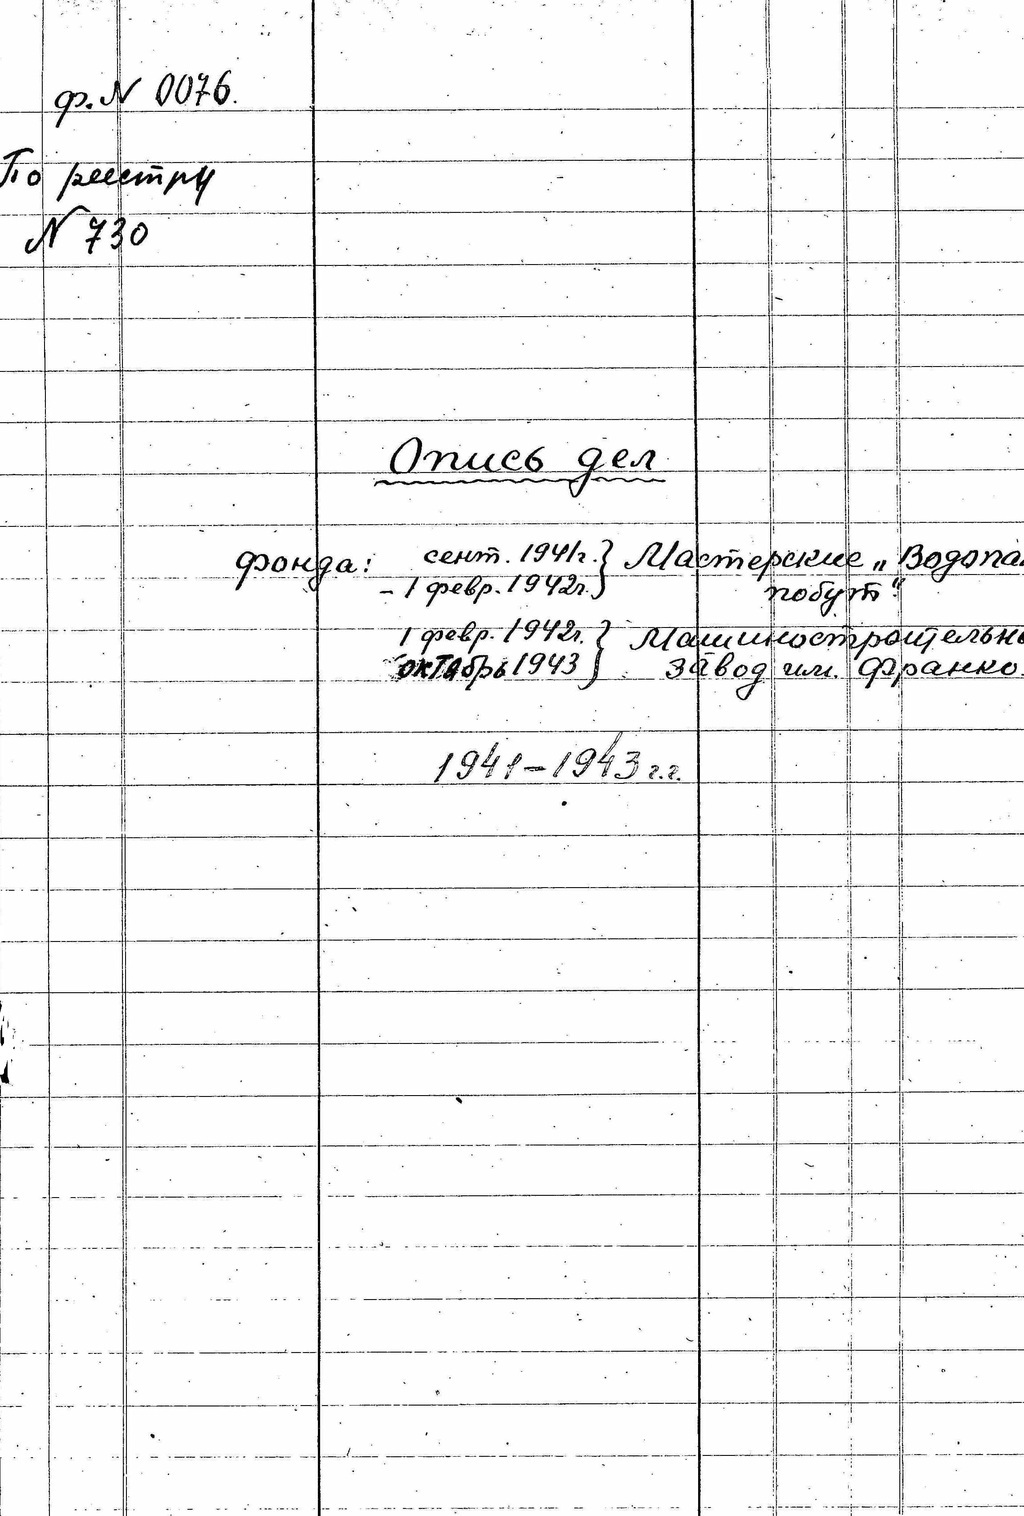 ф. N 0076.
По реестру
N 730
Опись дел
фонда: сент. 1941г. } Мастерские „Водопа
- 1 февр. 1942г. } побут"
1 февр. 1942г. } Машиностроительн
октябрь 1943 } завод им. Франко.
1941-1943 г.г.